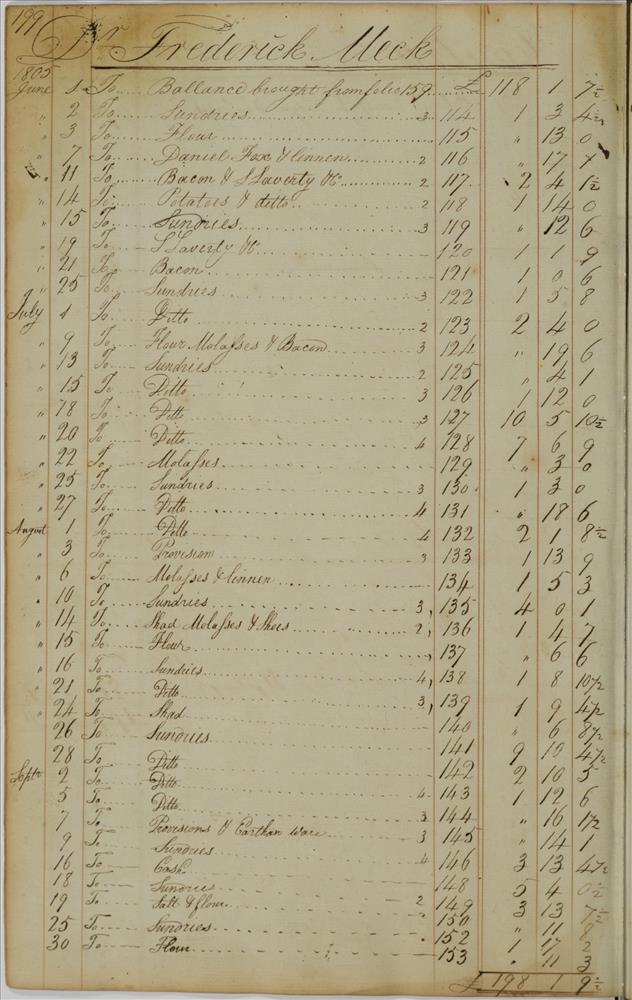 199
Dr Frederick Meck
1805
June 1 To Ballance brought from folio 159 £ 118 1 7½
" 2 To Sundries 3 114 1 3 4½
" 3 To Flour 115 " 13 0
" 7 To Daniel Fox & linnen 2 116 " 17 7
" 11 To Bacon & S Laverty &c 2 117 2 4 1½
" 14 To Potatoes & ditto 2 118 1 14 0
" 15 To Sundries 3 119 " 12 6
" 19 To S Laverty &c 120 1 1 9
" 21 To Bacon 121 1 0 6
" 25 To Sundries 3 122 1 5 8
July 1 To Ditto 2 123 2 4 0
" 9 To Flour Molasses & Bacon 3 124 " 19 6
" 13 To Sundries 2 125 " 4 1
" 15 To Ditto 3 126 1 12 0
" 18 To Ditto 3 127 10 5 10½
" 20 To Ditto 4 128 7 6 9
" 22 To Molasses 129 " 3 0
" 25 To Sundries 3 130 1 3 0
" 27 To Ditto 4 131 " 18 6
August 1 To Ditto 4 132 2 1 8½
" 3 To Provision 3 133 1 13 9
" 6 To Molasses & linnen 134 1 5 3
" 10 To Sundries 3 135 4 0 1
" 14 To Shad Molasses & Shoes 2 136 1 4 7
" 15 To Flour 137 " 6 6
" 16 To Sundries 4 138 1 8 10½
" 21 To Ditto 3 139 1 9 4½
" 24 To Shad 140 " 6 8½
26 To Sundries 141 9 10 4½
28 To Ditto 142 2 10 5
Septr 2 To Ditto 4 143 1 12 6
5 To Ditto 3 144 " 16 1½
7 To Provisions & Earthan ware 3 145 " 14 1
9 To Sundries 4 146 3 13 4½
16 To Cash 148 5 4 0½
18 To Sundries 2 149 3 13 7½
19 To Salt & flour 150 " 11 8
25 To Sundries 152 1 17 2
30 To Flour 153 " 11 3
£ 198 1 9½